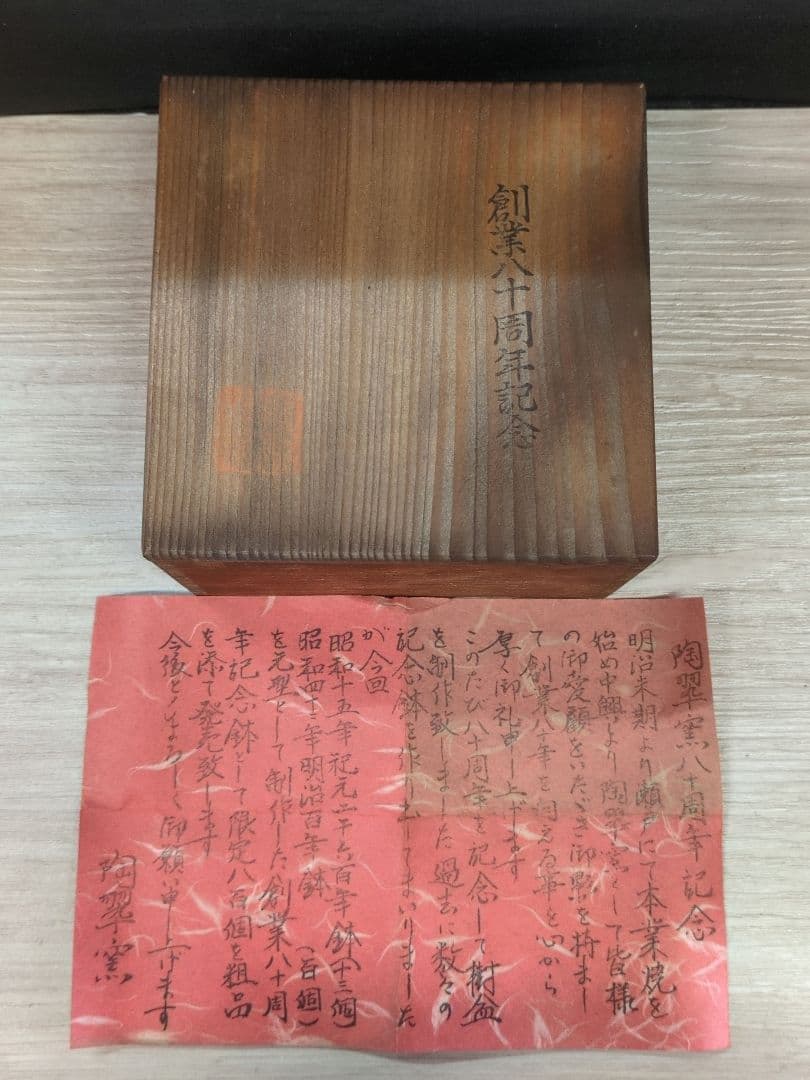 創業八十周年記念
陶翠窯八十周年記念
明治末期より瀬戸にて本業焼を
始め中興より陶翠窯として皆様
の御愛顧をいたゞき御影を持まし
て創業八十年を伺える事を心から
厚く御礼申し上げます
このたび八十周年を記念して樹盆
を制作致しました過去に数々の
記念鉢を作り出してまいりました
が今回
昭和十五年紀元二千六百年鉢(十三個)
昭和四十三年明治百年鉢(百個)
を元型として制作した創業八十周
年記念鉢として限定八百個を粗品
を添て発売致します
今後ともよろしく御願い申し上げます
陶翠窯